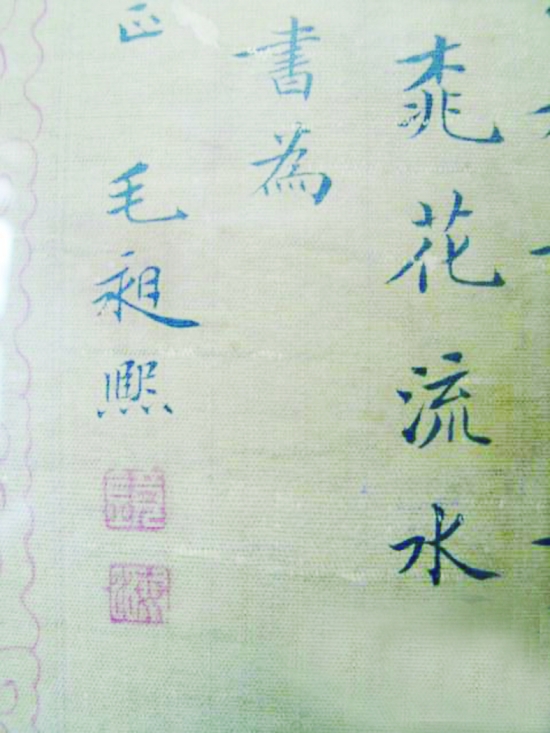 桃花流水
書為
正 毛昶熙